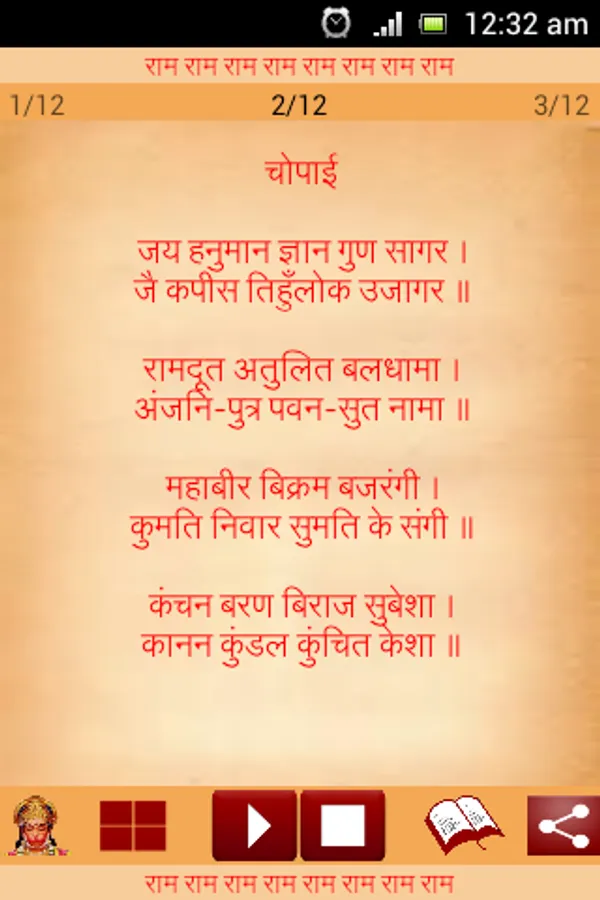 12:32 am
राम राम राम राम राम राम राम राम
1/12 2/12 3/12
चोपाई
जय हनुमान ज्ञान गुण सागर ।
जै कपीस तिहुँलोक उजागर ॥
रामदूत अतुलित बलधामा ।
अंजनि-पुत्र पवन-सुत नामा ॥
महाबीर बिक्रम बजरंगी ।
कुमति निवार सुमति के संगी ॥
कंचन बरण बिराज सुबेशा ।
कानन कुंडल कुंचित केशा ॥
राम राम राम राम राम राम राम राम